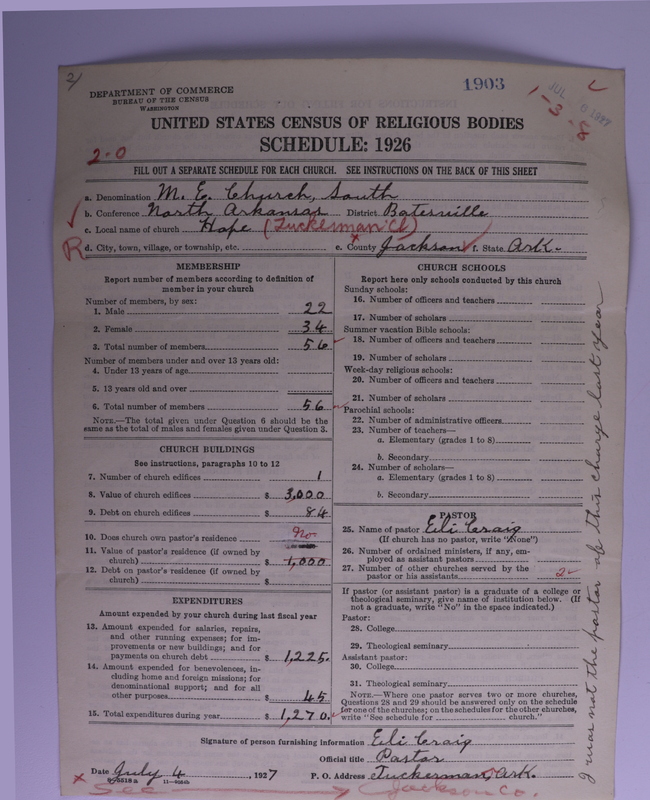 2/
DEPARTMENT OF COMMERCE
BUREAU OF THE CENSUS
WASHINGTON
1903
1-3-8
UNITED STATES CENSUS OF RELIGIOUS BODIES
SCHEDULE: 1926
2-0
FILL OUT A SEPARATE SCHEDULE FOR EACH CHURCH. SEE INSTRUCTIONS ON THE BACK OF THIS SHEET
a. Denomination M. E. Church, South
b. Conference North Arkansas District Batesville
c. Local name of church Hope (Tuckerman Ct)
R d. City, town, village, or township, etc. e. County Jackson f. State Ark.
MEMBERSHIP
Report number of members according to definition of
member in your church
Number of members, by sex:
1. Male 22
2. Female 34
3. Total number of members 56
Number of members under and over 13 years old:
4. Under 13 years of age
5. 13 years old and over
6. Total number of members 56
NOTE.—The total given under Question 6 should be the
same as the total of males and females given under Question 3.
CHURCH BUILDINGS
See instructions, paragraphs 10 to 12
7. Number of church edifices 1
8. Value of church edifices $ 3,000
9. Debt on church edifices $ 84
10. Does church own pastor's residence? No
11. Value of pastor's residence (if owned by
church) $ 1,000
12. Debt on pastor's residence (if owned by
church) $
EXPENDITURES
Amount expended by your church during last fiscal year
13. Amount expended for salaries, repairs,
and other running expenses; for im-
provements or new buildings; and for
payments on church debt $ 1,225.
14. Amount expended for benevolences, in-
cluding home and foreign missions; for
denominational support; and for all
other purposes $ 45
15. Total expenditures during year $ 1,270.
CHURCH SCHOOLS
Report here only schools conducted by this church
Sunday schools:
16. Number of officers and teachers
17. Number of scholars
Summer vacation Bible schools:
18. Number of officers and teachers
19. Number of scholars
Week-day religious schools:
20. Number of officers and teachers
21. Number of scholars
Parochial schools:
22. Number of administrative officers
23. Number of teachers—
a. Elementary (grades 1 to 8)
b. Secondary
24. Number of scholars—
a. Elementary (grades 1 to 8)
b. Secondary
PASTOR
25. Name of pastor Eli Craig
(If church has no pastor, write "None")
26. Number of ordained ministers, if any, em-
ployed as assistant pastors
27. Number of other churches served by the
pastor or his assistants 2
If pastor (or assistant pastor) is a graduate of a college or
theological seminary, give name of institution below. (If
not a graduate, write "No" in the space indicated.)
Pastor:
28. College
29. Theological seminary
Assistant pastor:
30. College
31. Theological seminary
NOTE.—Where one pastor serves two or more churches,
Questions 28 and 29 should be answered only on the schedule
for one of the churches; on the schedules for the other churches,
write "See schedule for church."
I was not the pastor of this charge last year
Signature of person furnishing information Eli Craig
Official title Pastor
Date July 4, 1927 P. O. Address Tuckerman, Ark.
x See Jackson Co.